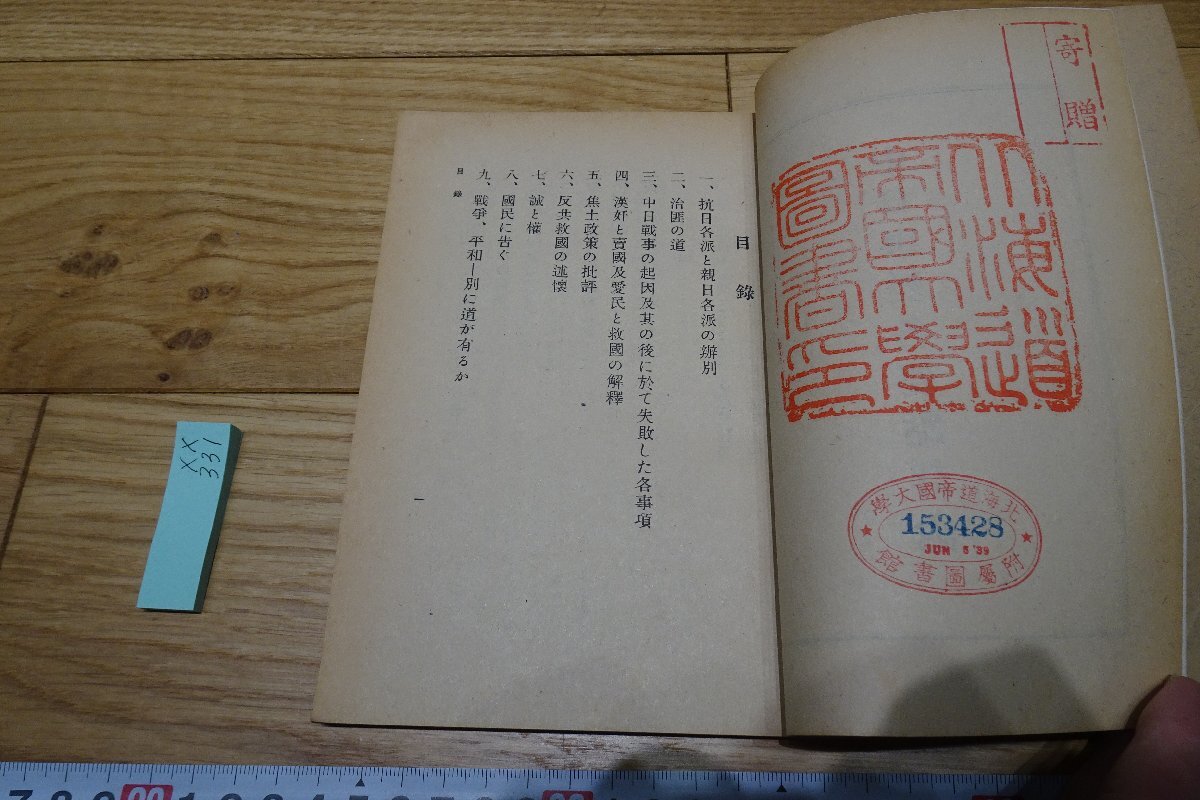 寄贈
北海道
帝國大學
圖書印
北海道帝國大學
153428
JUN 5 '39
附屬圖書館
目錄
一、抗日各派と親日各派の辨別
二、治匪の道
三、中日戰事の起因及其の後に於て失敗した各事項
四、漢奸と賣國及愛民と救國の解釋
五、焦土政策の批評
六、反共救國の述懷
七、誠と權
八、國民に告ぐ
九、戰爭、平和ー別に道が有るか
目錄
一
XX
331